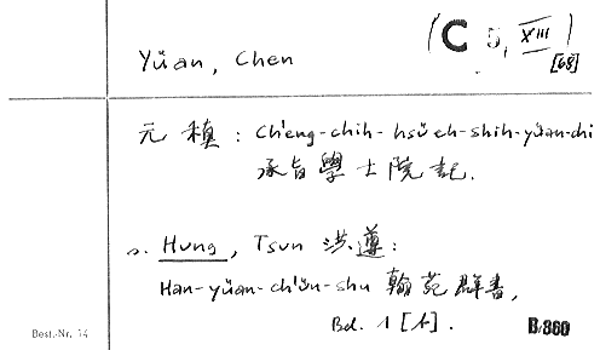 (C 5, XIII)
[68]
Yüan, Chen
元稹 : Ch'eng-chih-hsüeh-shih-yüan-chi
承旨學士院記.
Hung, Tsun 洪遵 :
Han-yüan-ch'ün-shu 翰苑群書,
Bd. 1 [1].
B/860
Best.-Nr. 14